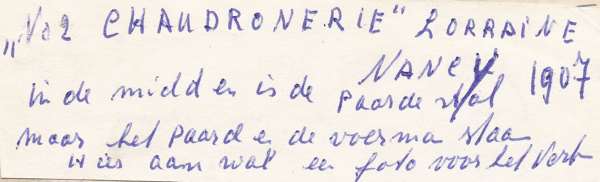 „No 2 CHAUDRONERIE" LORRAINE
NANCY 1907
in de midden is de paardestal
maar het paard en de voerma staan
aam wal een foto voor het